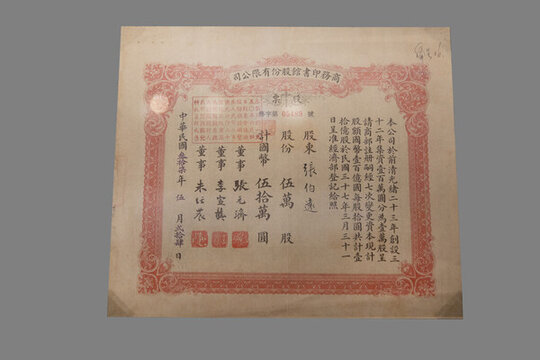 商務印書館股份有限公司
股票
字第 05189 號
本公司於前清光緒二十三年創設三
十二年集資壹百萬圓分為壹萬股呈
請商部註冊嗣經七次變更資本現計
股額國幣壹百億圓每股拾圓共計壹
拾億股於民國三十七年三月三十一
日呈准經濟部登記給照
股東 張伯遠
股份 伍萬 股
計國幣 伍拾萬 圓
董事 張元濟
董事 李宣龔
董事 朱經農
中華民國叁拾柒年 伍 月 貳拾肆 日